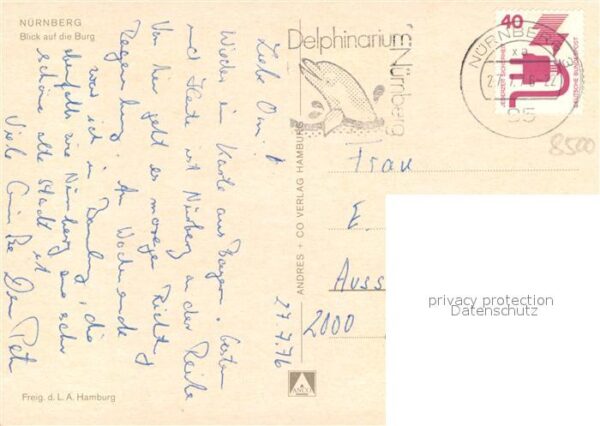 NÜRNBERG
Blick auf die Burg
Liebe Omi!
Wieder ein Karte aus Bayern. Gestern
und Heute ist Nürnberg an der Reihe
Von hier geht es morgen Richtung
Regensburg. Am Wochenende
war ich in Bamberg, die
ebenfalls wie Nürnberg eine sehr
schöne alte Stadt ist
Viele Grüße Dein Peter
27.7.76
Freig. d. L. A. Hamburg
ANDRES + CO VERLAG HAMBURG
ANCO
Delphinarium
Nürnberg
NÜRNBERG
85
40
JEDERZEIT SICHERHEIT
DEUTSCHE BUNDESPOST
8500
Frau
E.
Auss
2000
privacy protection
Datenschutz